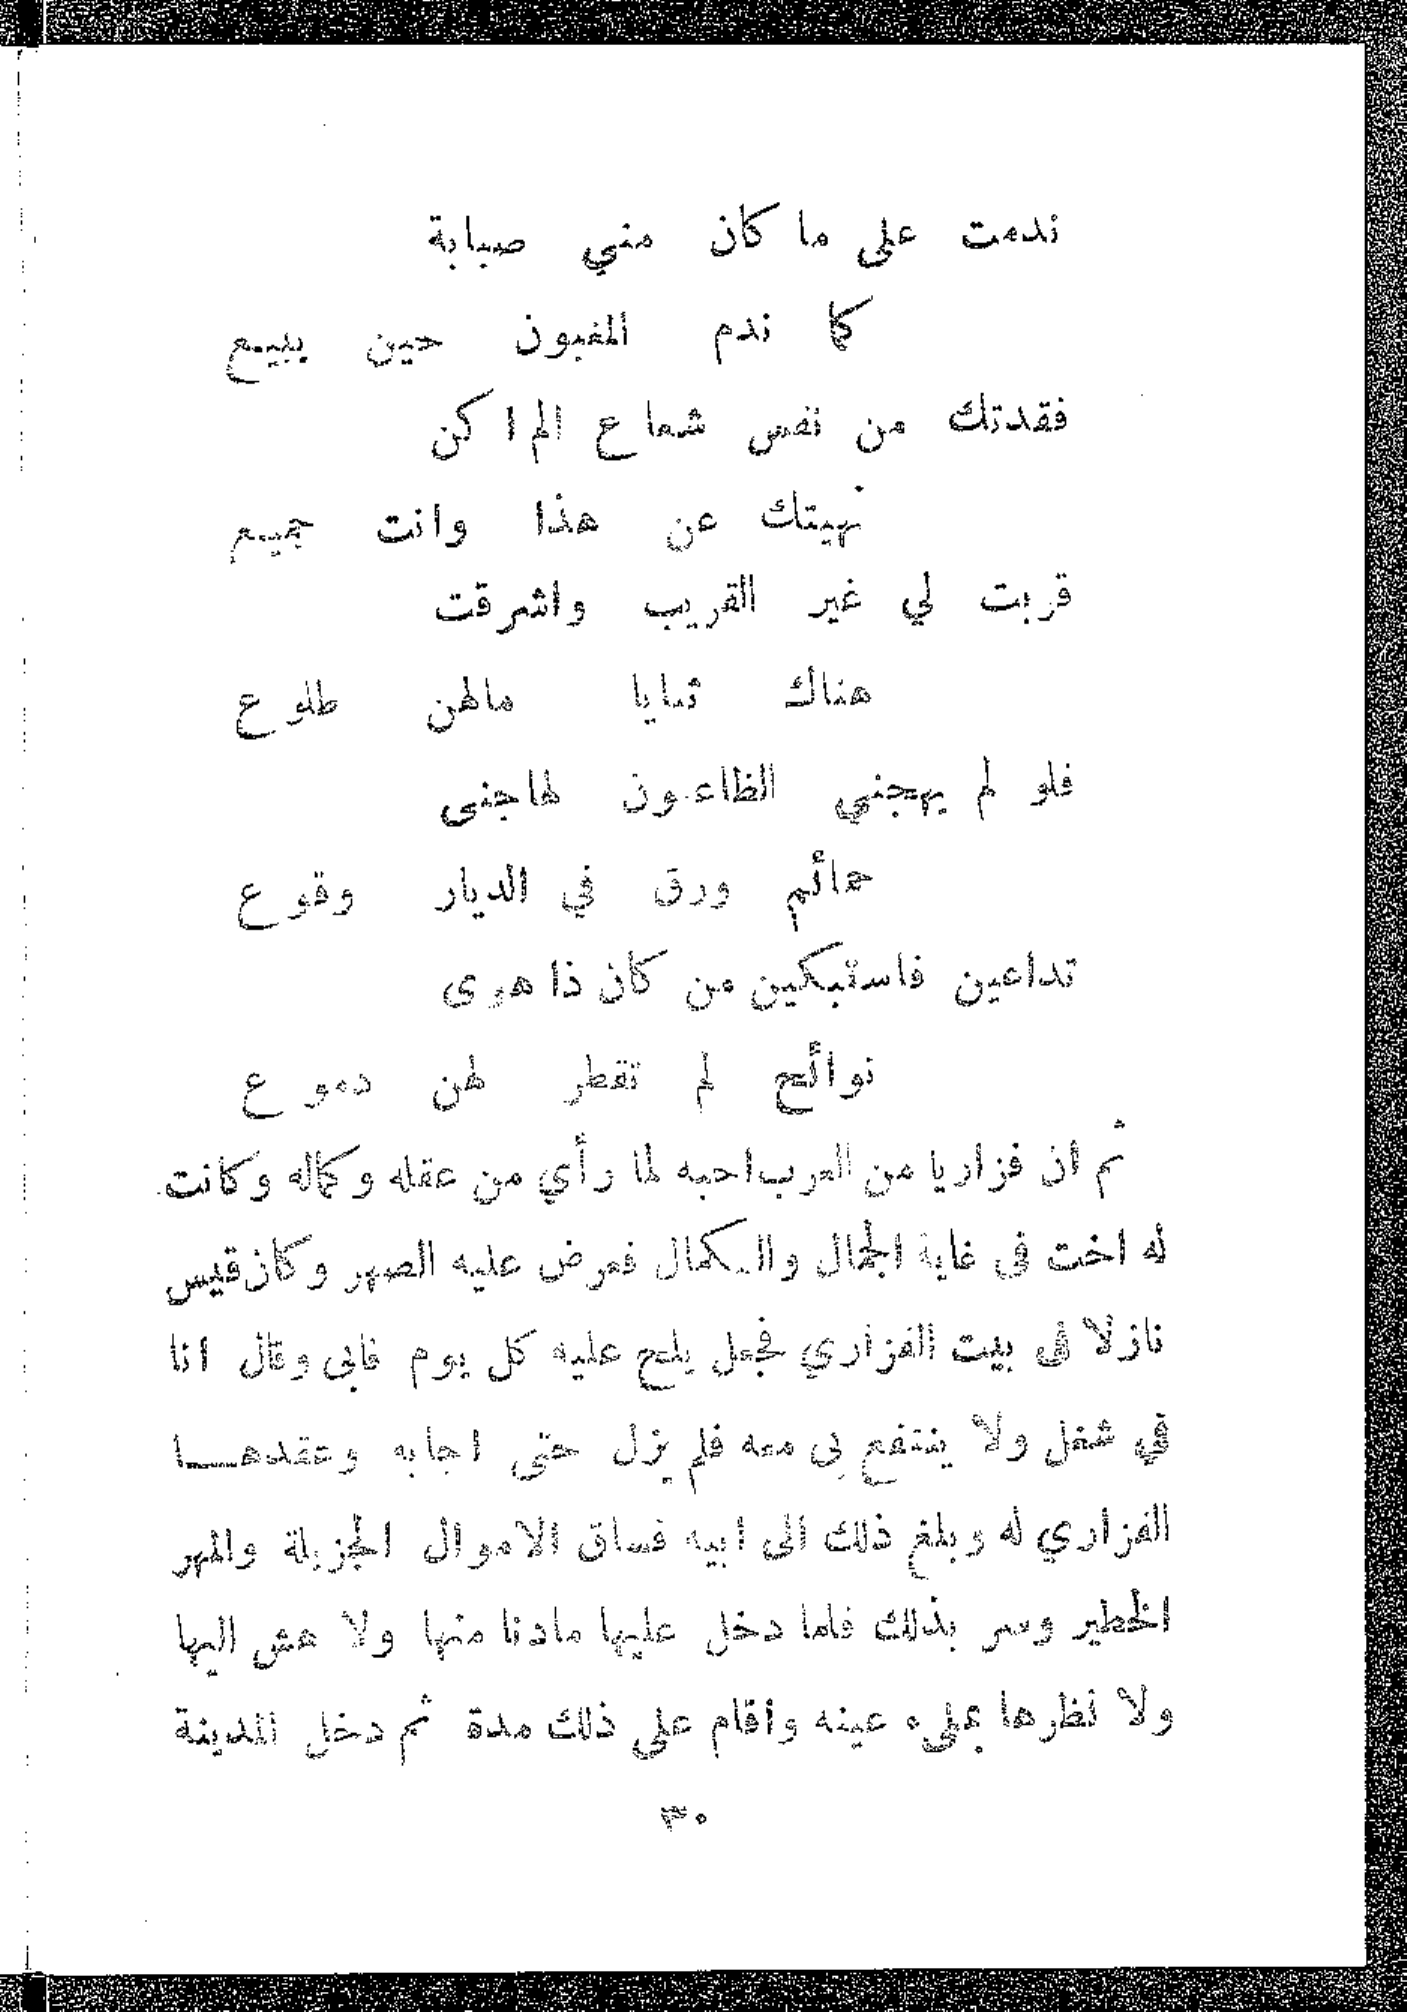 ندمت على ما كان مني صبابة
كما ندم المغبون حين يبيع
فقدتك من نفس شعاع الم اكن
نهيتك عن هذا وانت جميع
قربت لي غير القريب واشرقت
هناك ثنايا مالهن طلوع
فلو لم يهجني الظاعنون لهاجنى
حمائم ورق في الديار وقوع
تداعين فاستبكين من كان ذا هوى
نوائح لم تقطر لهن دموع
ثم ان فزاريا من العرب احبه لما رأي من عقله وكماله وكانت
له اخت فى غاية الجمال والكمال فعرض عليه الصهر وكان قيس
نازلا فى بيت الفزاري فجعل يلح عليه كل يوم فابى وقال انا
في شغل ولا ينتفع بى معه فلم يزل حتى اجابه وعقدها
الفزاري له وبلغ ذلك الى ابيه فساق الاموال الجزيلة والمهر
الخطير وسر بذلك فلما دخل عليها مادنا منها ولا هش اليها
ولا نظرها بملىء عينه واقام على ذلك مدة ثم دخل المدينة
٣٠